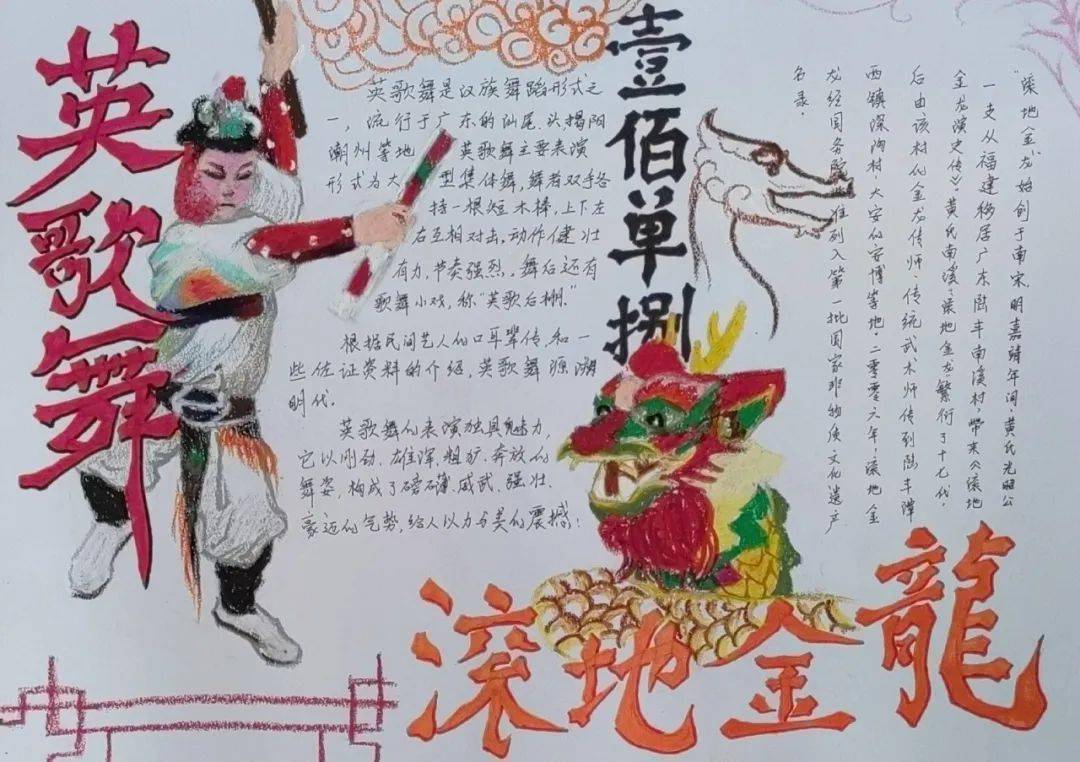 英歌舞
英歌舞是汉族舞蹈形式之
一，流行于广东的汕尾、汕头、揭阳
潮州等地 英歌舞主要表演
形式为大 型集体舞，舞者双手各
持一根短木棒，上下左
右互相对击，动作健壮
有力，节奏强烈，舞后还有
歌舞小戏，称“英歌后棚。”
根据民间艺人的口耳辈传和一
些佐证资料的介绍，英歌舞源溯
明代。
英歌舞的表演独具魅力，
它以刚劲、雄浑、粗犷、奔放的
舞姿，构成了磅礴、威武、强壮、
豪迈的气势，给人以力与美的震撼；
壹佰单捌
“滚地金龙”始创于南宋。明嘉靖年间，黄氏光昭公
一支从福建移居广东陆丰南溪村，带来《滚地
金龙演史传》，黄氏南溪“滚地金龙”繁衍了十七代，
后由该村的金龙传师、传统武术师传到陆丰潭
西镇深沟村，大安的安博等地。二零零六年，滚地金
龙经国务院 准列入第一批国家非物质文化遗产
名录。
滚地金龍